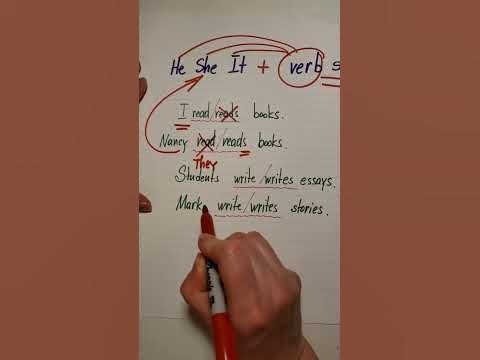 He She It + verb s
I read/reads books.
Nancy read/reads books.
They
Students write/writes essays.
Mark write/writes stories.